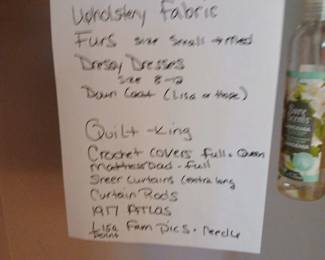 Upholstery Fabric
Furs size small → med
Dressy Dresses
size 8-12
Down Coat (Lisa or Hope)
Quilt - King
Crochet covers full + Queen
mattress pad - full
Sheer curtains (extra long
Curtain Rods
1917 ATLAS
Lisa Fam Pics + Needle
point